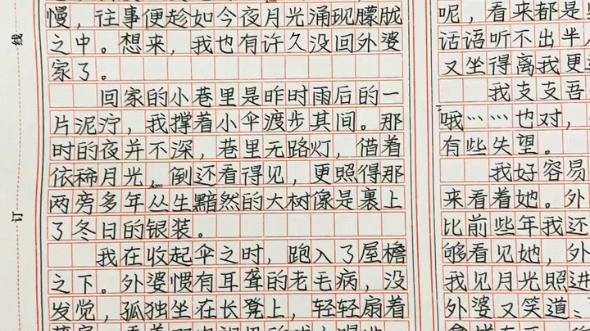 慢，往事便趁如今夜月光涌现朦胧
之中。想来，我也有许久没回外婆
家了。
回家的小巷里是昨时雨后的一
片泥泞，我撑着小伞渡步其间。那
时的夜并不深，巷里无路灯，借着
依稀月光，倒还看得见，更照得那
两旁多年丛生黯然的大树像是裹上
了冬日的银装。
我在收起伞之时，跑入了屋檐
之下。外婆惯有耳聋的老毛病，没
发觉，孤独坐在长凳上，轻轻扇着
呢，看来都是
话语听不出半
又坐得离我更
我支支吾
哦……也对，
有些失望。
我好容易
来看着她。外
比前些年我还
够看见她，外
我见月光照进
外婆又笑道：
线
订